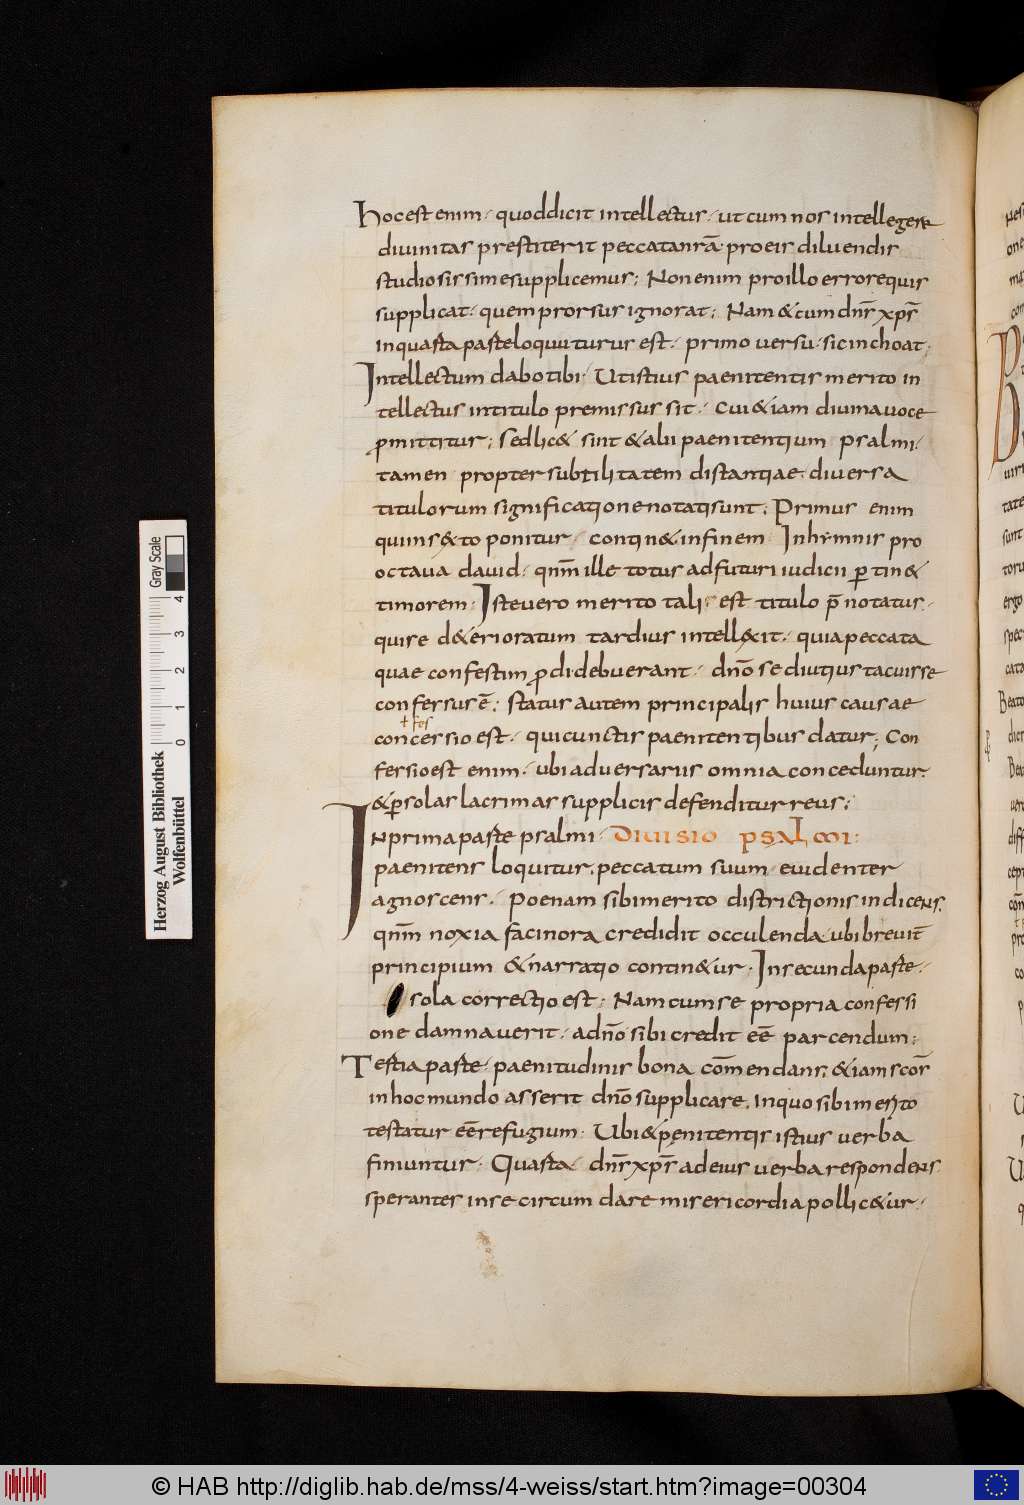 hoc est enim · quod dicit intellectus · ut cum nos intellegere
diuinitas prestiterit peccata nrā · pro eis diluendis
studiosissime supplicemus ; Non enim pro illo errore quis
supplicat · quem prorsus ignorat ; Nam & cum dnr̄ xps̄
in quasta paste loquuturus est · primo uersu · sic inchoat ;
Intellectum dabo tibi · Ut istius paenitentis merito in
tellectus in titulo premissus sit · cui & iam diuina uoce
ꝓmittitur ; sed lic& sint & alii paenitentium psalmi ·
tamen propter subtilitatem distantiae diuersa
titulorum significatione notati sunt ; Primus enim
qui in s&to ponitur · contin& in finem In hymnis pro
octaua dauid · qnm̄ ille totus ad futuri iudicii ꝑtin&
timorem · Iste uero merito tali · est titulo p̄notatus ·
qui se d&erioratum tardius intell&it · quia peccata
quae confestim ꝓdi debuerant · dnō se diutius tacuisse
confessus ē ; status autem principalis huius causae
ł fes
concessio est · qui cunctis paenitentibus datur ; Con
fessio est enim · ubi aduersariis omnia conceduntur
& ꝑ solas lacrimas supplicis defenditur reus ;
IN prima paste psalmi · DIUISIO PSALMI :
paenitens loquitur · peccatum suum euidenter
agnoscens · Poenam sibi merito districtionis indicens
qnm̄ noxia facinora credidit occulenda · ubi breuit̄
principium & narratio contin&ur · In secunda paste ·
sola correctio est ; Nam cum se propria confessi
one damnauerit · ad nō sibi credit eē parcendum ;
Testia paste · paenitudinis bona com̄endans · & iam scōr
in hoc mundo asserit dnō supplicare · in quo sibi merito
testatur eē refugium · Ubi & penitentis istius uerba
finiuntur · Quasta dnr̄ xps̄ ad eius uerba respondens
sperantes in se circum dare misericordia pollic&ur ·
Herzog August Bibliothek
Wolfenbüttel
0 1 2 3 4
Gray Scale
© HAB http://diglib.hab.de/mss/4-weiss/start.htm?image=00304